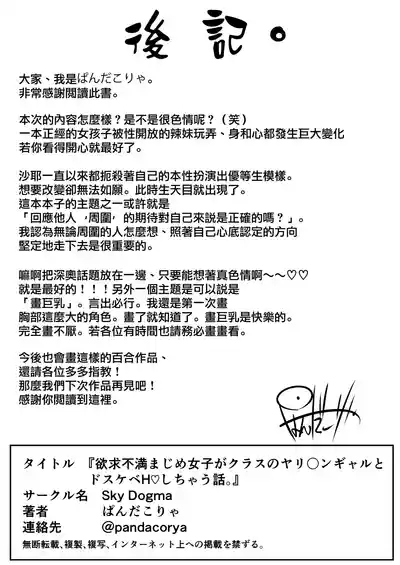 後記。
大家、我是ぱんだこりゃ。
非常感謝閱讀此書。
本次的內容怎麼樣？是不是很色情呢？（笑）
一本正經的女孩子被性開放的辣妹玩弄、身和心都發生巨大變化
若你看得開心就最好了。
沙耶一直以來都扼殺著自己的本性扮演出優等生模樣。
想要改變卻無法如願。此時生天目就出現了。
這本本子的主題之一或許就是
「回應他人‘周圍’的期待對自己來說是正確的嗎？」。
我認為無論周圍的人怎麼想、照著自己心底認定的方向
堅定地走下去是很重要的。
嘛啊把深奧話題放在一邊、只要能想著真色情啊～～♡♡
就是最好的！！！另外一個主題是可以說是
「畫巨乳」。言出必行。我還是第一次畫
胸部這麼大的角色。畫了就知道了。畫巨乳是快樂的。
完全畫不厭。若各位有時間也請務必畫畫看。
今後也會畫這樣的百合作品、
還請各位多多指教！
那麼我們下次作品再見吧！
感謝你閱讀到這裡。
ぱんだこりゃ
タイトル 『欲求不満まじめ女子がクラスのヤリ〇ンギャルと
ドスケベH♡しちゃう話。』
サークル名 Sky Dogma
著者 ぱんだこりゃ
連絡先 @pandacorya
無断転載、複製、複写、インターネット上への掲載を禁ずる。